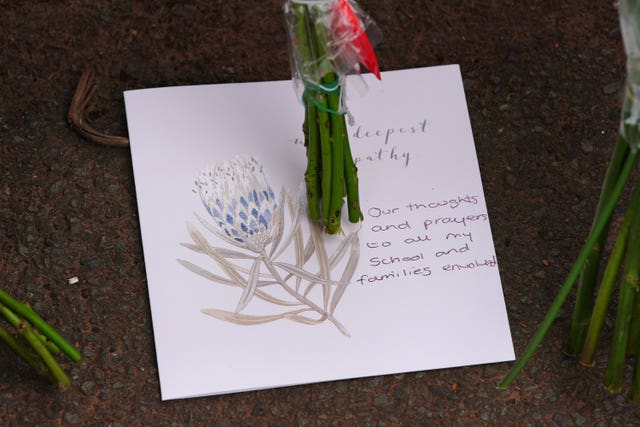 deepest
Our thoughts
and prayers
to all my
School and
families envolved